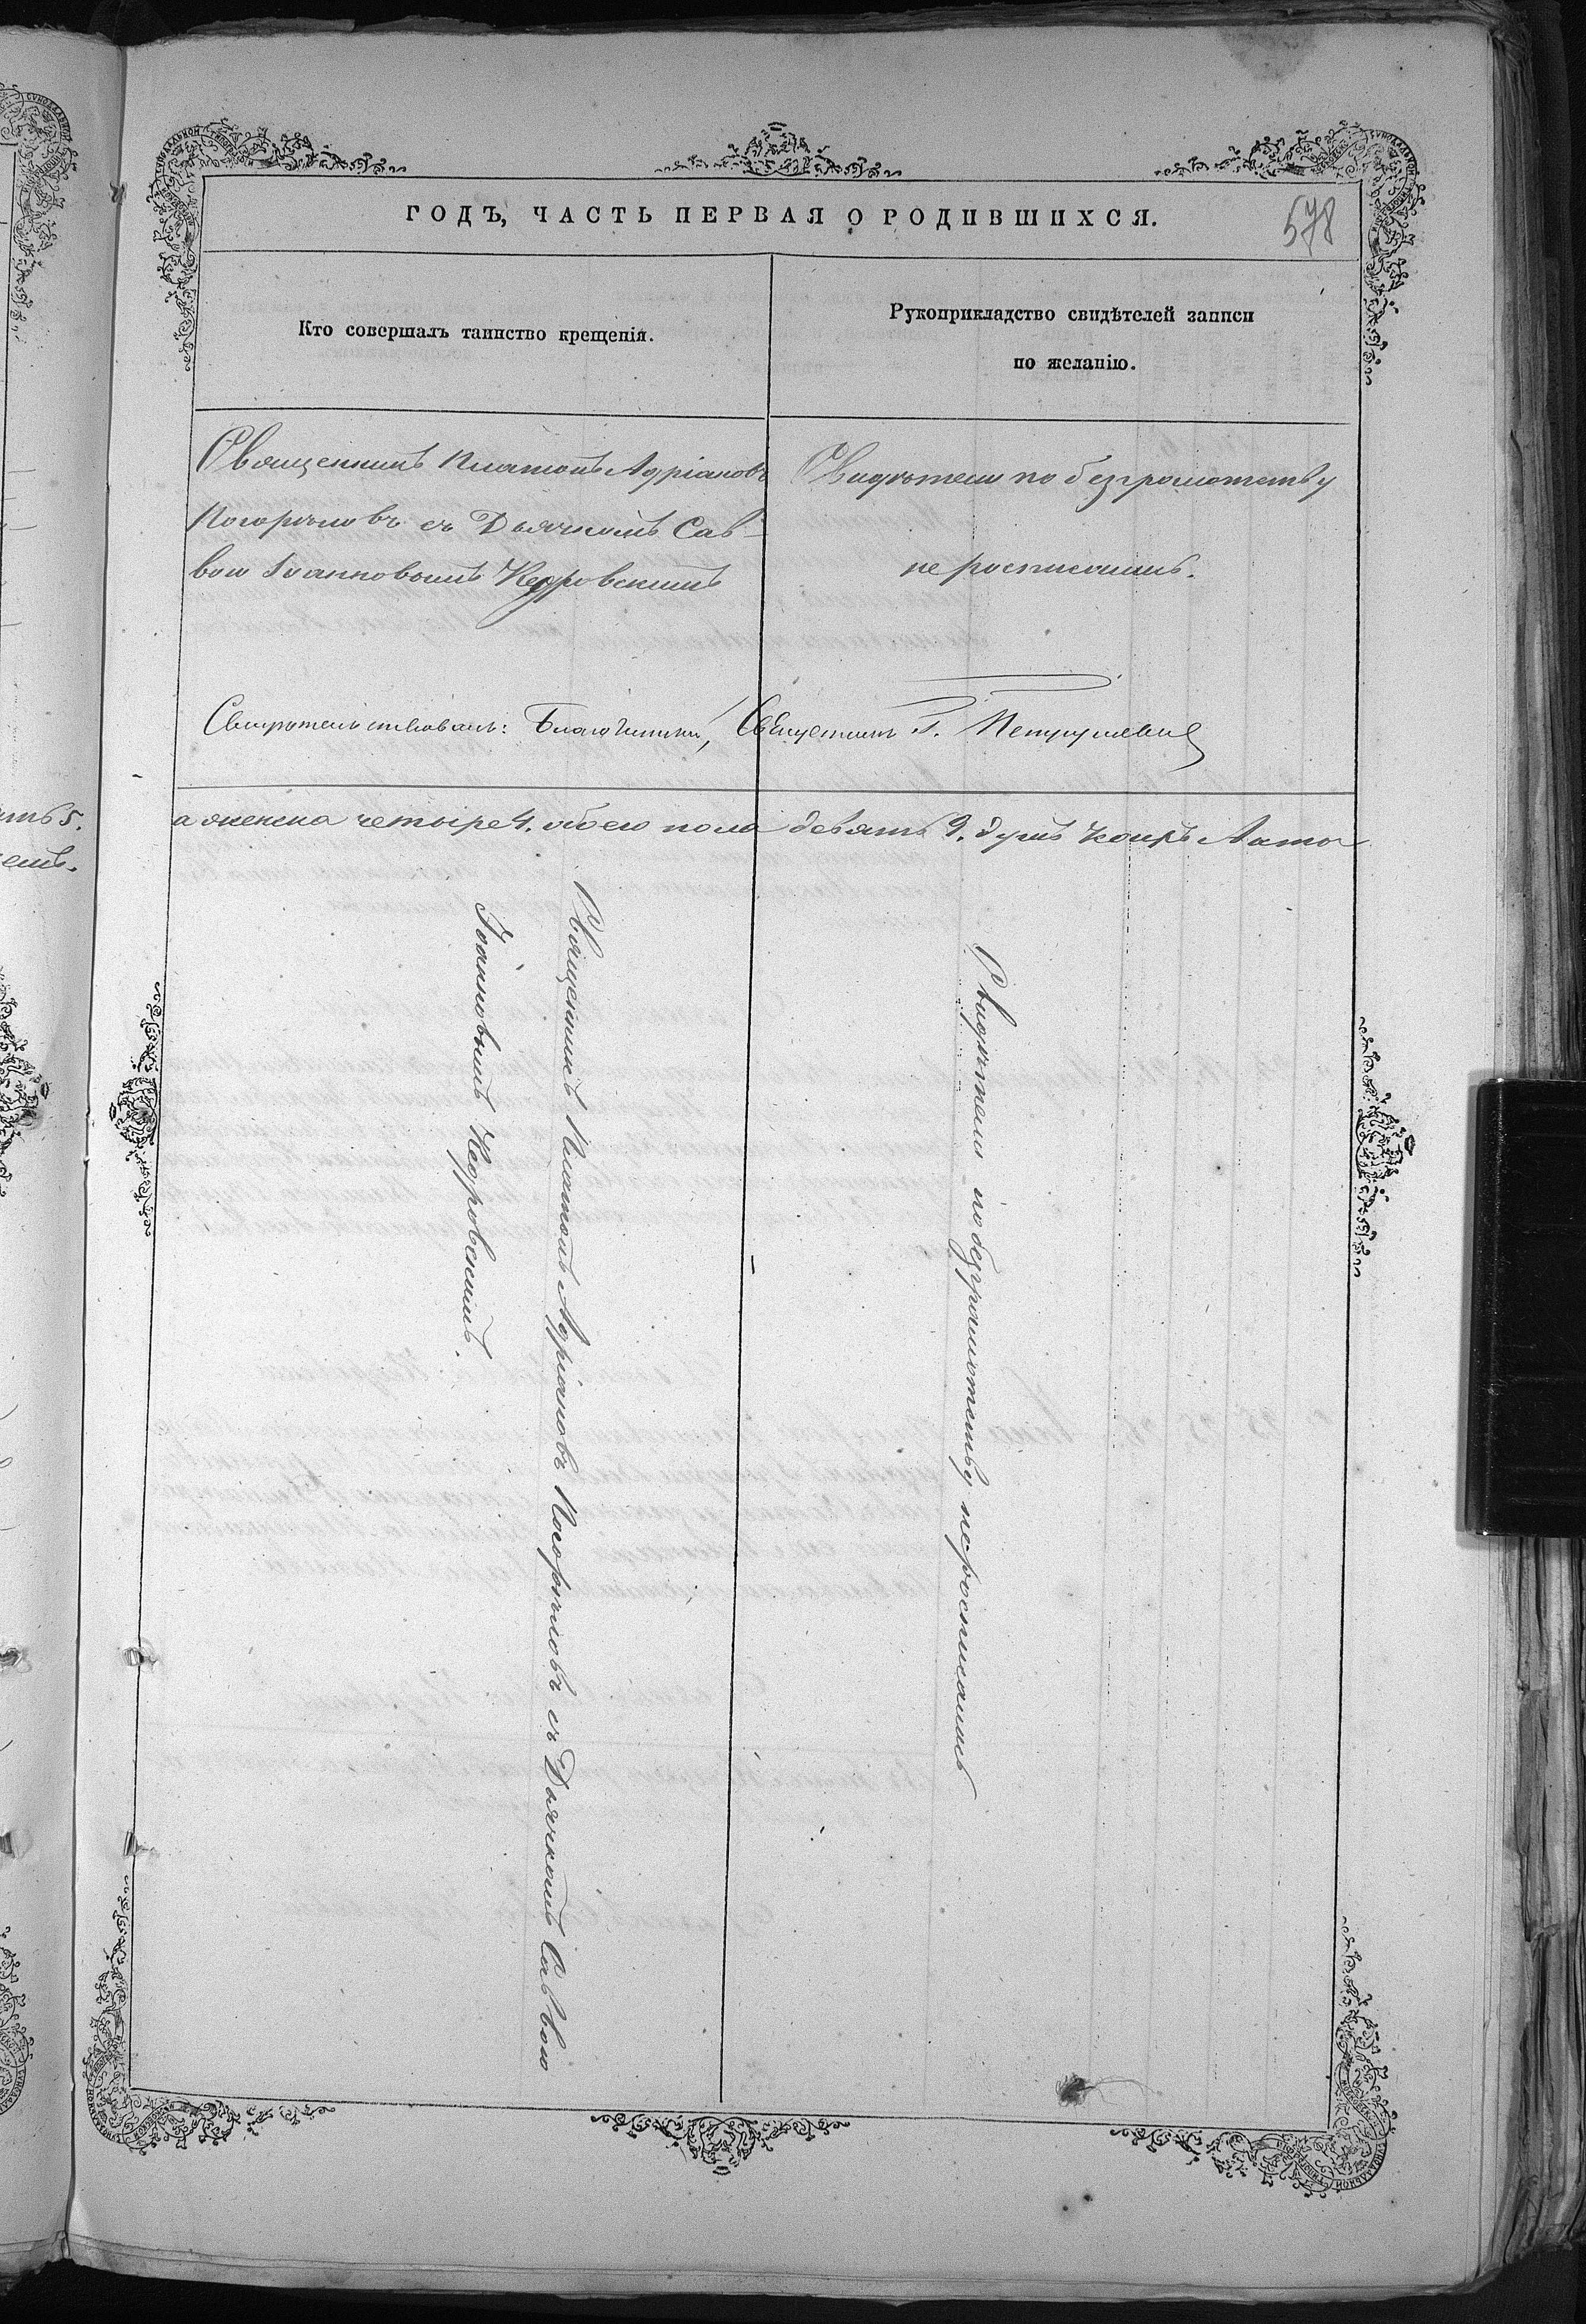 ГОДЪ, ЧАСТЬ ПЕРВАЯ О РОДИВШИХСЯ.
578
Кто совершалъ таинство крещенія.
Рукоприкладство свидѣтелей записи
по желанію.
Священникъ Платонъ Адріановъ
Погорѣловъ съ Дьячкомъ Сав-
вою Іоанновымъ Кедровскимъ
Свидѣтели по безграмотству
не росписались.
Свидѣтельствовалъ: Благочинный, Священникъ П. Петрушевич
а женска четыре 4. обоего пола девять 9. душъ
Священникъ Платонъ Адріановъ Погорѣловъ съ Дьячкомъ Саввою
Іоанновымъ Кедровскимъ.
Свидѣтели по безграмотству не росписались